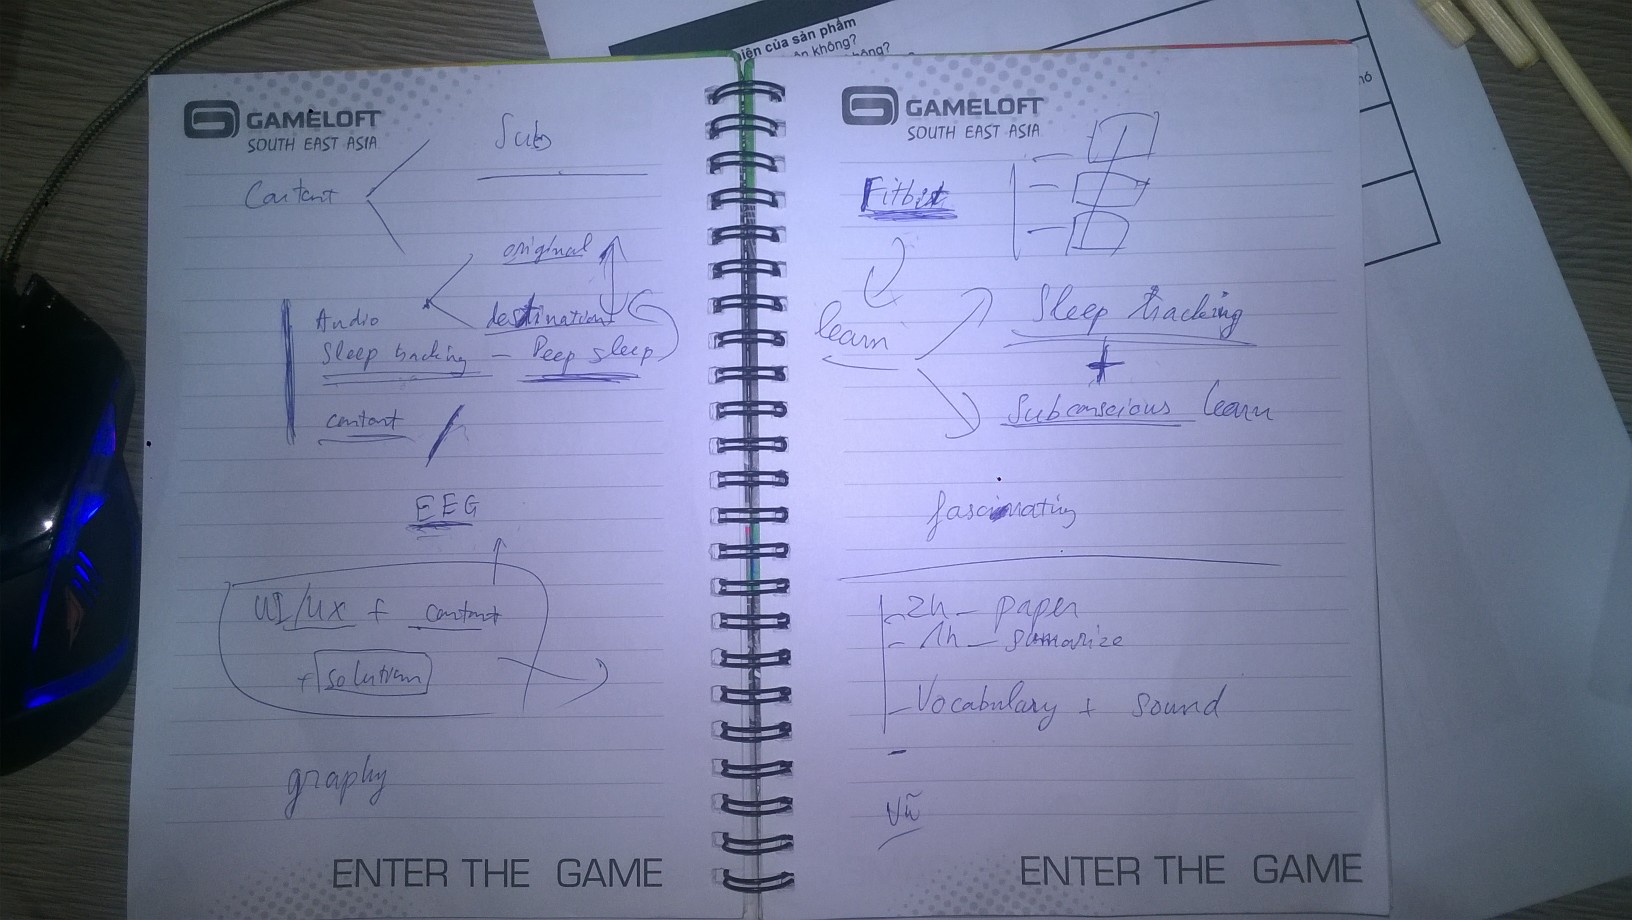 iện của sản phẩm
không?
không?
GAMELOFT
SOUTH EAST ASIA
Subs
Contant
original
Audio
destination
Sleep tracking - Deep sleep
contant
EEG
UI/UX + contant
+ solution
graphy
ENTER THE GAME
GAMELOFT
SOUTH EAST ASIA
Fitbit
learn
Sleep tracking
+
Subconscious learn
fascinating
- 2h - paper
- 1h - sumarize
- Vocabulary + sound
-
Vũ
ENTER THE GAME